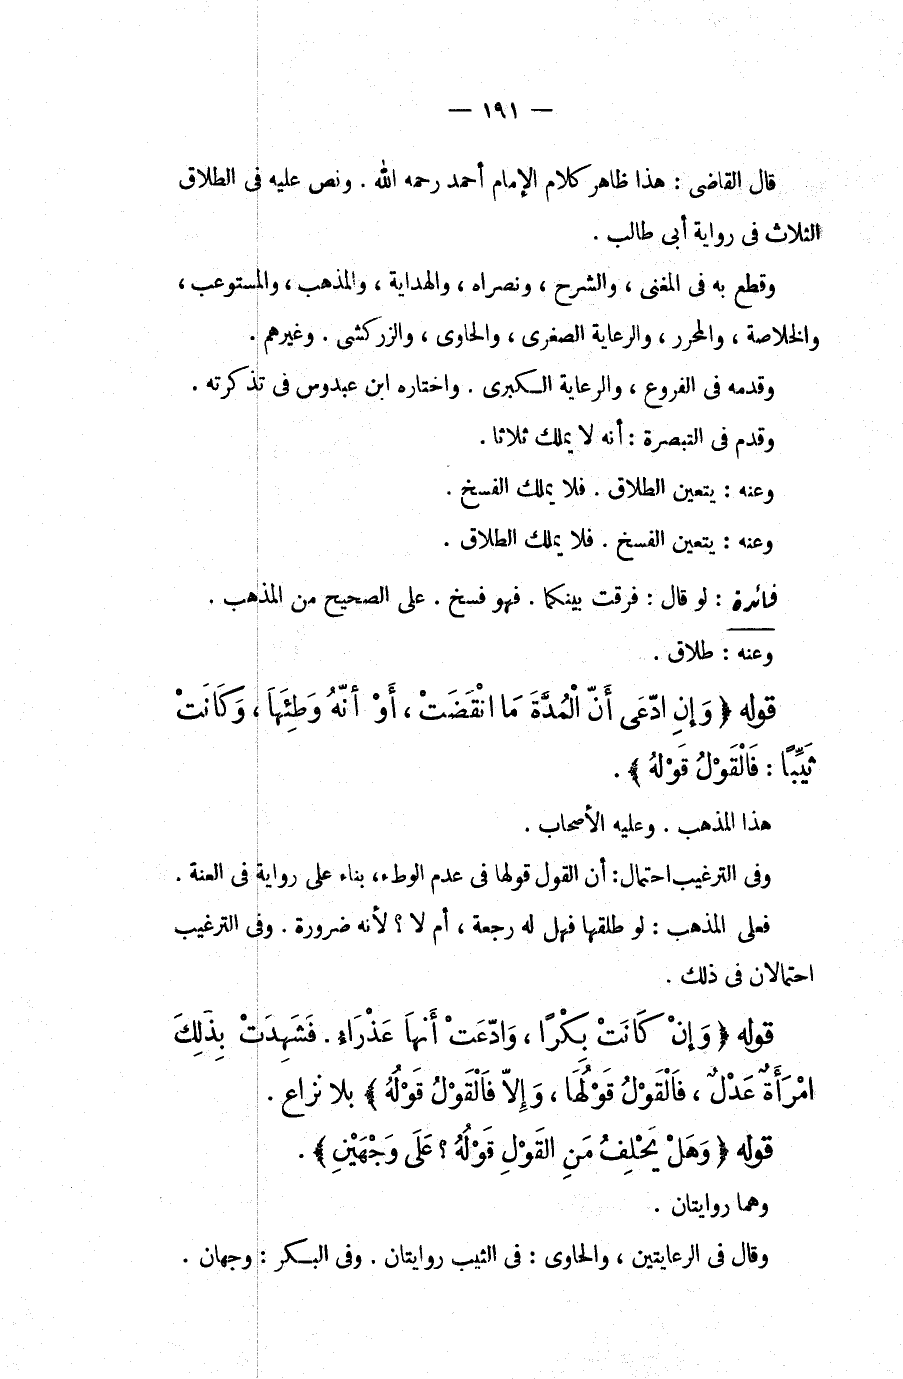 — ١٩١ —
قال القاضى : هذا ظاهر كلام الإمام أحمد رحمه الله . ونص عليه فى الطلاق
الثلاث فى رواية أبى طالب .
وقطع به فى المغنى ، والشرح ، ونصراه ، والهداية ، والمذهب ، والمستوعب ،
والخلاصة ، والمحرر ، والرعاية الصغرى ، والحاوى ، والزركشى . وغيرهم .
وقدمه فى الفروع ، والرعاية الكبرى . واختاره ابن عبدوس فى تذكرته .
وقدم فى التبصرة : أنه لا يملك ثلاثا .
وعنه : يتعين الطلاق . فلا يملك الفسخ .
وعنه : يتعين الفسخ . فلا يملك الطلاق .
فائدة : لو قال : فرقت بينكما . فهو فسخ . على الصحيح من المذهب .
وعنه : طلاق .
قوله ﴿ وَإِنِ ادّعَى أَنّ الْمُدَّةَ مَا انْقَضَتْ ، أَوْ أنّهُ وَطِئَهَا ، وَكَانَتْ
ثَيِّبًا : فَالْقَوْلُ قَوْلهُ ﴾ .
هذا المذهب . وعليه الأصحاب .
وفى الترغيب احتمال : أن القول قولها فى عدم الوطء، بناء على رواية فى العنة .
فعلى المذهب : لو طلقها فهل له رجعة ، أم لا ؟ لأنه ضرورة . وفى الترغيب
احتمالان فى ذلك .
قوله ﴿ وَإِنْ كَانَتْ بِكْرًا ، وَادّعَتْ أَنهاَ عَذْرَاء . فَشَهِدَتْ بِذَلِكَ
امْرَأَةٌ عَدْلٌ ، فَالْقَوْلُ قَوْلُهَا ، وَإِلاّ فَالْقَوْلُ قَوْلُهُ ﴾ بلا نزاع .
قوله ﴿ وَهَلْ يَحْلِفُ مَنِ القَوْلِ قَوْلُهُ ؟ عَلَى وَجْهَيْنِ ﴾ .
وهما روايتان .
وقال فى الرعايتين ، والحاوى : فى الثيب روايتان . وفى البكر : وجهان .